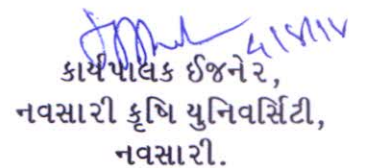 કાર્યપાલક ઈજનેર,
નવસારી કૃષિ યુનિવર્સિટી,
નવસારી.